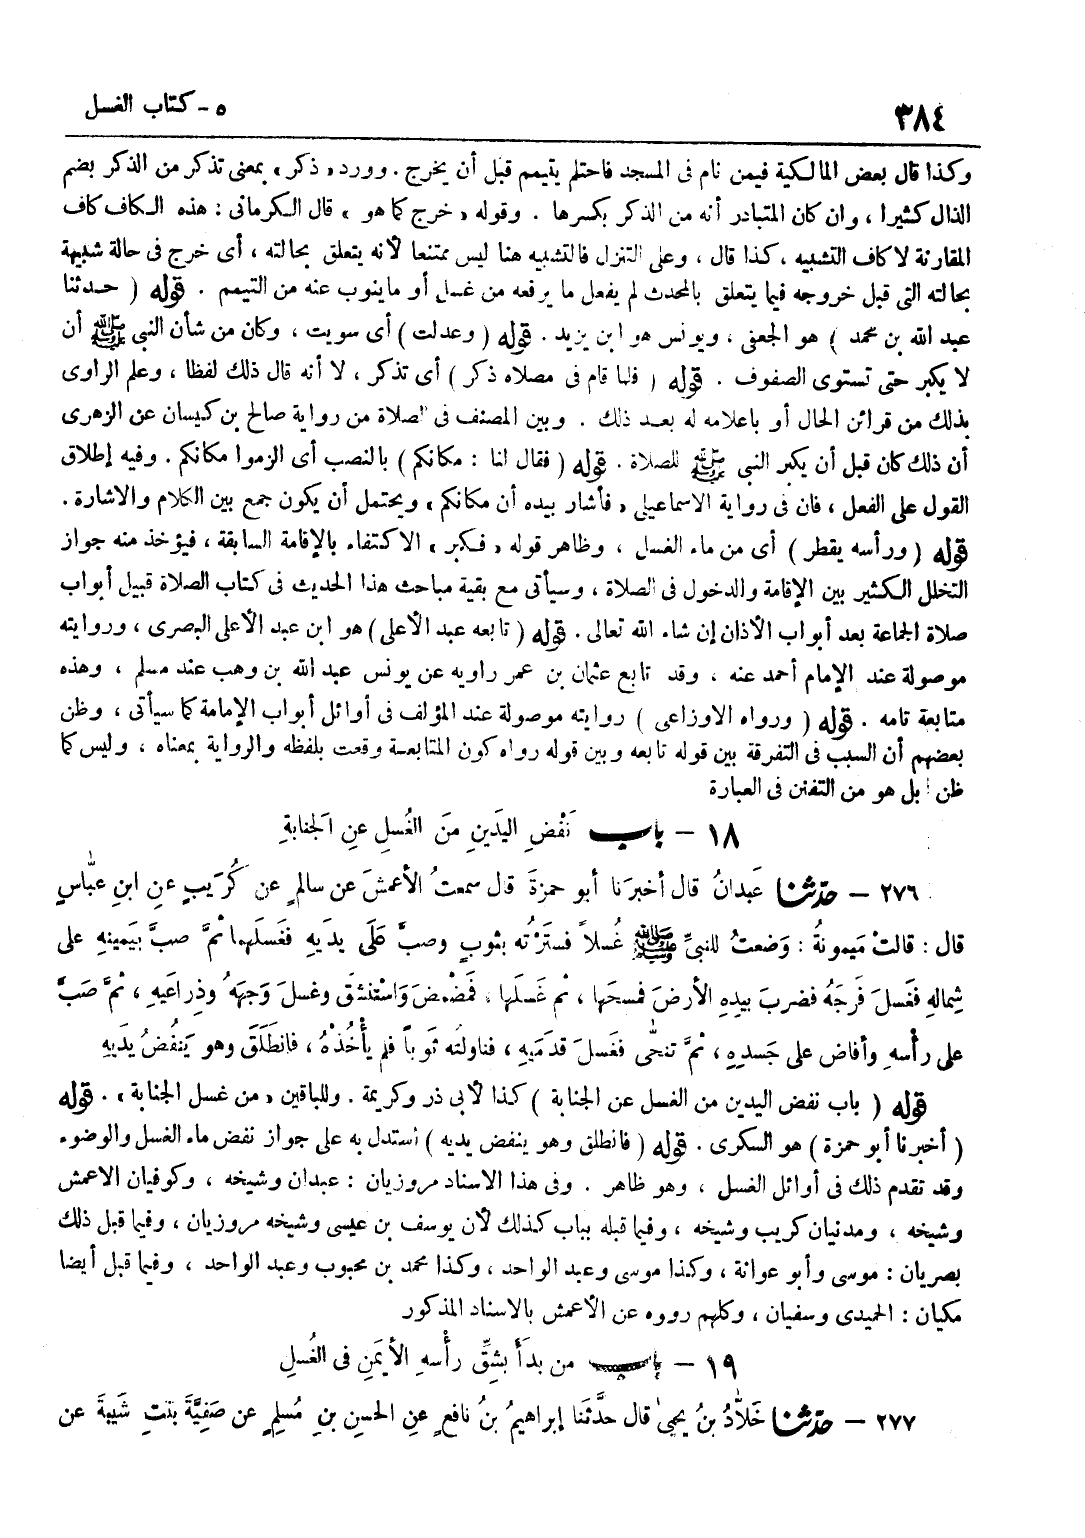 ٣٨٤
٥ - كتاب الغسل
وكذا قال بعض المالكية فيمن نام فى المسجد فاحتلم يتيمم قبل أن يخرج . وورد « ذكر » بمعنى تذكر من الذكر بضم
الذال كثيرا ، وان كان المتبادر أنه من الذكر بكسرها . وقوله « خرج كما هو » قال الكرمانى : هذه الكاف كاف
المقارنة لا كاف التشبيه ، كذا قال ، وعلى التنزل فالتشبيه هنا ليس ممتنعا لأنه يتعلق بحالته ، أى خرج فى حالة شبيهة
بحالته التى قبل خروجه فيما يتعلق بالمحدث لم يفعل ما يرفعه من غسل أو ما ينوب عنه من التيمم . قوله ( حدثنا
عبد الله بن محمد ) هو الجعفى ، ويونس هو ابن يزيد . قوله ( وعدلت ) أى سويت ، وكان من شأن النبى ﷺ أن
لا يكبر حتى تستوى الصفوف . قوله ( فلما قام فى مصلاه ذكر ) أى تذكر ، لا أنه قال ذلك لفظا ، وعلم الراوى
بذلك من قرائن الحال أو باعلامه له بعد ذلك . وبين المصنف فى الصلاة من رواية صالح بن كيسان عن الزهرى
أن ذلك كان قبل أن يكبر النبى ﷺ للصلاة . قوله ( فقال لنا : مكانكم ) بالنصب أى الزموا مكانكم . وفيه إطلاق
القول على الفعل ، فان فى رواية الاسماعيلى « فأشار بيده أن مكانكم » ويحتمل أن يكون جمع بين الكلام والاشارة .
قوله ( ورأسه يقطر ) أى من ماء الغسل ، وظاهر قوله « فكبر » الاكتفاء بالإقامة السابقة ، فيؤخذ منه جواز
التخلل الكثير بين الإقامة والدخول فى الصلاة ، وسيأتى مع بقية مباحث هذا الحديث فى كتاب الصلاة قبيل أبواب
صلاة الجماعة بعد أبواب الأذان إن شاء الله تعالى . قوله ( تابعه عبد الأعلى ) هو ابن عبد الأعلى البصرى ، وروايته
موصولة عند الإمام أحمد عنه ، وقد تابع عثمان بن عمر راويه عن يونس عبد الله بن وهب عند مسلم ، وهذه
متابعة تامه . قوله ( ورواه الاوزاعى ) روايته موصولة عند المؤلف فى أوائل أبواب الإمامة كما سيأتى ، وظن
بعضهم أن السبب فى التفرقة بين قوله تابعه وبين قوله رواه كون المتابعة وقعت بلفظه والرواية بمعناه ، وليس كما
ظن ! بل هو من التفنن فى العبارة
١٨ - باب نَفْضِ اليَدَينِ منَ الغُسلِ عنِ الجَنابةِ
٢٧٦ - حدّثنا عَبدانُ قال أخبرَنا أبو حمزةَ قال سمعتُ الأعمشَ عن سالمٍ عن كُرَيبٍ عنِ ابنِ عبّاسٍ
قال : قالتْ مَيمونةُ : وَضعتُ للنبيِّ ﷺ غُسلاً فستَرْتُه بثوبٍ وصبَّ عَلَى يدَيهِ فغسَلَهما ثمَّ صبَّ بيَمينهِ على
شِمالهِ فغَسلَ فَرجَهُ فضربَ بيدِهِ الأرضَ فمسحَها ، ثم غَسلَها ، فمَضْمضَ وَاستَنشقَ وغسلَ وَجهَهُ وذِراعَيهِ ، ثمَّ صَبَّ
على رأْسهِ وأفاض على جَسدِهِ ، ثمَّ تنحّى فغَسلَ قدَمَيهِ ، فناولته ثَوباً فلم يأْخُذْهُ ، فانطَلَقَ وهو يَنفُضُ يدَيهِ
قوله ( باب نفض اليدين من الغسل عن الجنابة ) كذا لأبى ذر وكريمة . وللباقين « من غسل الجنابة » . قوله
( أخبرنا أبو حمزة ) هو السكرى . قوله ( فانطلق وهو ينفض يديه ) استدل به على جواز نفض ماء الغسل والوضوء
وقد تقدم ذلك فى أوائل الغسل ، وهو ظاهر . وفى هذا الاسناد مروزيان : عبدان وشيخه ، وكوفيان الاعمش
وشيخه ، ومدنيان كريب وشيخه ، وفيما قبله بباب كذلك لأن يوسف بن عيسى وشيخه مروزيان ، وفيما قبل ذلك
بصريان : موسى وأبو عوانة ، وكذا موسى وعبد الواحد ، وكذا محمد بن محبوب وعبد الواحد ، وفيما قبل أيضا
مكيان : الحميدى وسفيان ، وكلهم رووه عن الأعمش بالاسناد المذكور
١٩ - باب من بدَأَ بشِقِّ رأْسهِ الأيمَنِ فى الغُسلِ
٢٧٧ - حدّثنا خَلاّدُ بنُ يحيىٰ قال حدَّثَنا إبراهيمُ بنُ نافعٍ عنِ الحسنِ بنِ مُسلمٍ عن صَفِيَّةَ بنتِ شَيبةَ عن